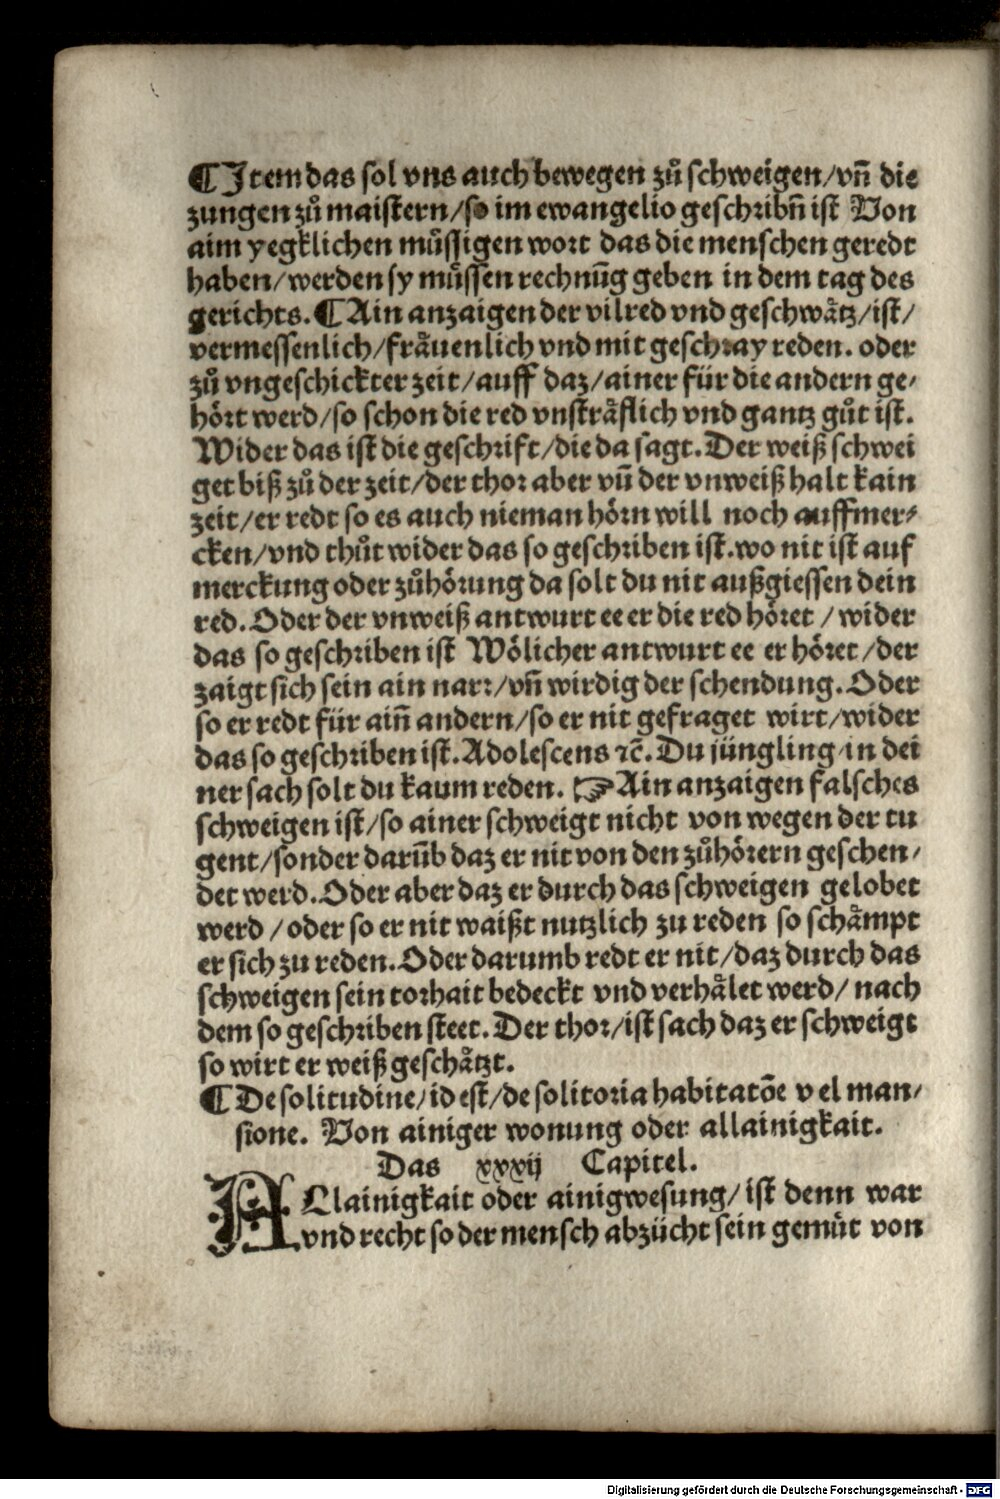 ¶Item das sol vns auch bewegen zů schweigen/vn̄ die
zungen zů maistern/so im ewangelio geschribn̄ ist Von
aim yegklichen můssigen wort das die menschen geredt
haben/werden sy můssen rechnūg geben in dem tag des
gerichts.¶Ain anzaigen der vilred vnd geschwåtz/ist/
vermessenlich/fråuenlich vnd mit geschray reden. oder
zů vngeschickter zeit/auff daz/ainer für die andern ge-
hört werd/so schon die red vnstråflich vnd gantz gůt ist.
Wider das ist die geschrift/die da sagt.Der weiß schwei
get biß zů der zeit/der thor aber vn̄ der vnweiß halt kain
zeit/er redt so es auch nieman hörn will noch auffmer-
cken/vnd thůt wider das so geschriben ist.wo nit ist auf
merckung oder zůhörung da solt du nit außgiessen dein
red.Oder der vnweiß antwurt ee er die red höret / wider
das so geschriben ist Wölicher antwurt ee er höret/der
zaigt sich sein ain narr/vn̄ wirdig der schendung.Oder
so er redt für ain̄ andern/so er nit gefraget wirt/wider
das so geschriben ist.Adolescens ꝛc̄.Du jüngling in dei
ner sach solt du kaum reden. ☞Ain anzaigen falsches
schweigen ist/so ainer schweigt nicht von wegen der tu
gent/sonder darūb daz er nit von den zůhörern geschen-
det werd.Oder aber daz er durch das schweigen gelobet
werd /oder so er nit waißt nutzlich zu reden so schåmpt
er sich zu reden.Oder darumb redt er nit/daz durch das
schweigen sein torhait bedeckt vnd verhålet werd/ nach
dem so geschriben steet.Der thor/ist sach daz er schweigt
so wirt er weiß geschåtzt.
¶De solitudine/id est/de solitoria habitatōe vel man-
sione. Von ainiger wonung oder allainigkait.
Das xxxij Capitel.
ALlainigkait oder ainigwesung/ist denn war
vnd recht so der mensch abzücht sein gemůt von
Digitalisierung gefördert durch die Deutsche Forschungsgemeinschaft - DFG